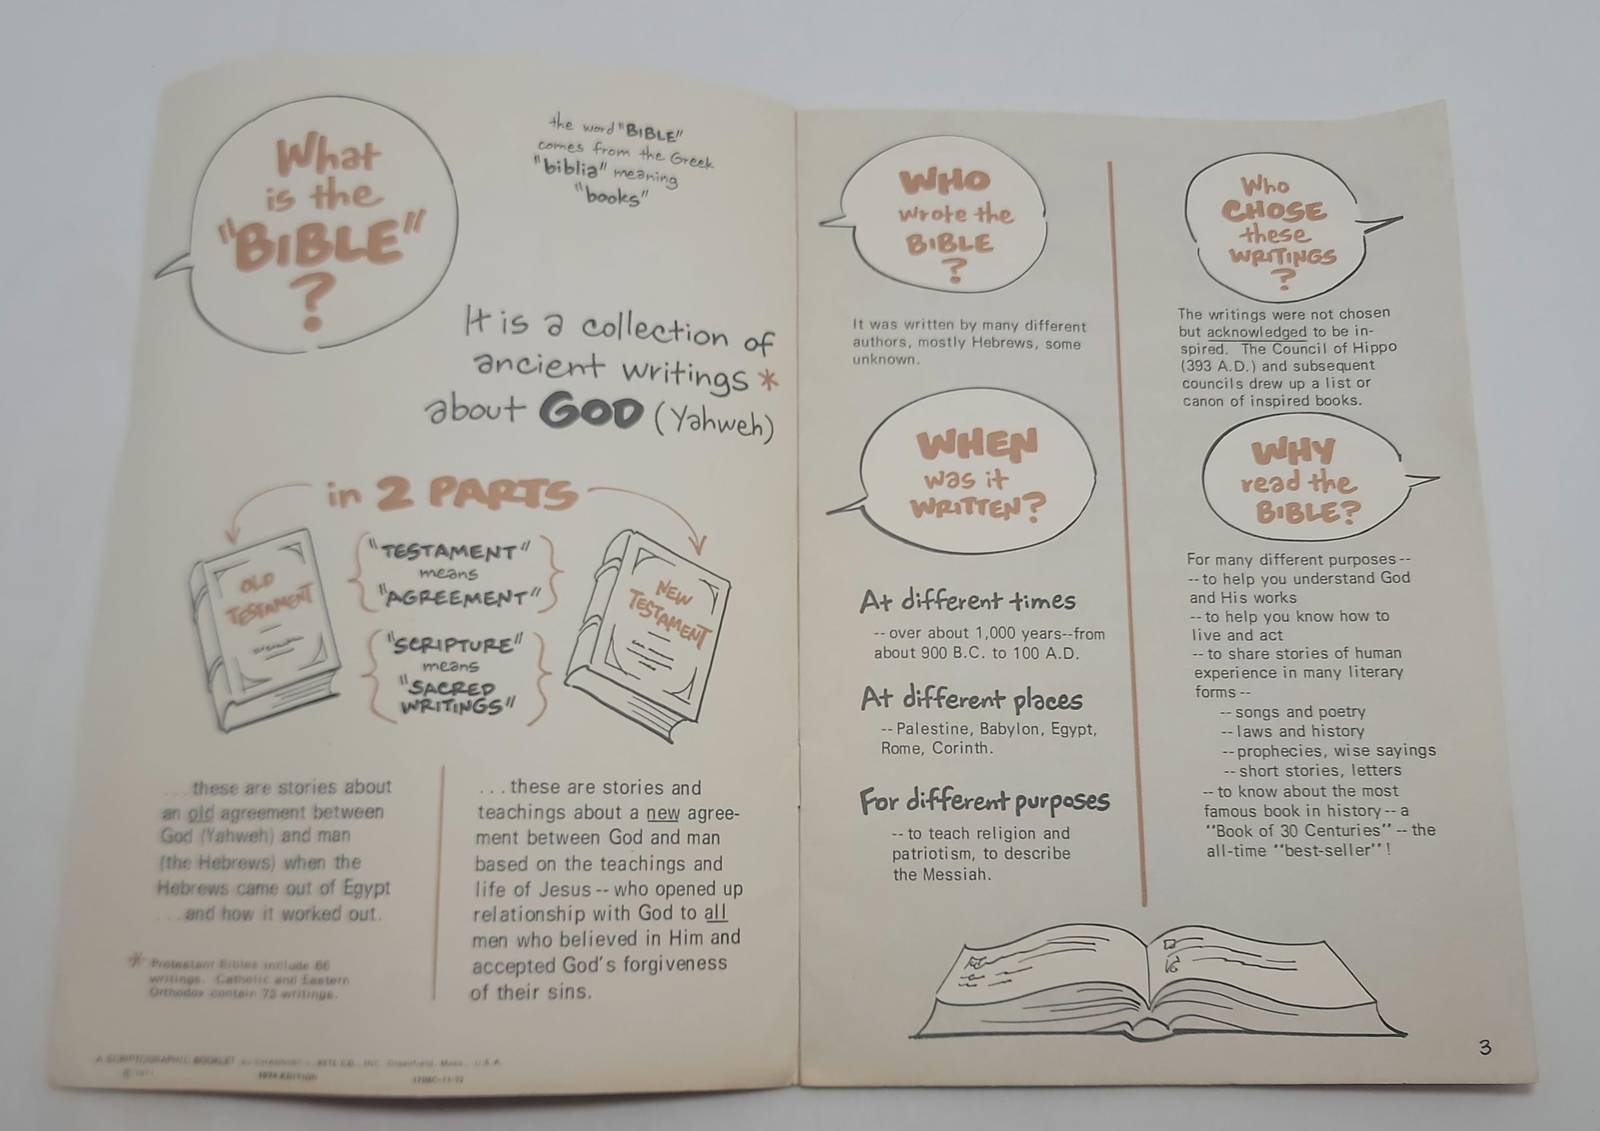 What
is the
"BIBLE"
?
the word "BIBLE"
comes from the Greek
"biblia" meaning
"books"
It is a collection of
ancient writings *
about GOD (Yahweh)
in 2 PARTS
OLD
TESTAMENT
"TESTAMENT"
means
"AGREEMENT"
"SCRIPTURE"
means
"SACRED
WRITINGS"
NEW
TESTAMENT
...these are stories about
an old agreement between
God (Yahweh) and man
(the Hebrews) when the
Hebrews came out of Egypt
...and how it worked out.
* Protestant Bibles include 66
writings. Catholic and Eastern
Orthodox contain 73 writings.
...these are stories and
teachings about a new agree-
ment between God and man
based on the teachings and
life of Jesus -- who opened up
relationship with God to all
men who believed in Him and
accepted God's forgiveness
of their sins.
A SCRIPTOGRAPHIC BOOKLET by CHANNING L. BETE CO., INC. Greenfield, Mass., U.S.A.
1974 EDITION
WHO
wrote the
BIBLE
?
It was written by many different
authors, mostly Hebrews, some
unknown.
WHEN
was it
WRITTEN?
At different times
-- over about 1,000 years--from
about 900 B.C. to 100 A.D.
At different places
-- Palestine, Babylon, Egypt,
Rome, Corinth.
For different purposes
-- to teach religion and
patriotism, to describe
the Messiah.
Who
CHOSE
these
WRITINGS
?
The writings were not chosen
but acknowledged to be in-
spired. The Council of Hippo
(393 A.D.) and subsequent
councils drew up a list or
canon of inspired books.
WHY
read the
BIBLE?
For many different purposes --
-- to help you understand God
and His works
-- to help you know how to
live and act
-- to share stories of human
experience in many literary
forms --
-- songs and poetry
-- laws and history
-- prophecies, wise sayings
-- short stories, letters
-- to know about the most
famous book in history -- a
"Book of 30 Centuries" -- the
all-time "best-seller"!
3